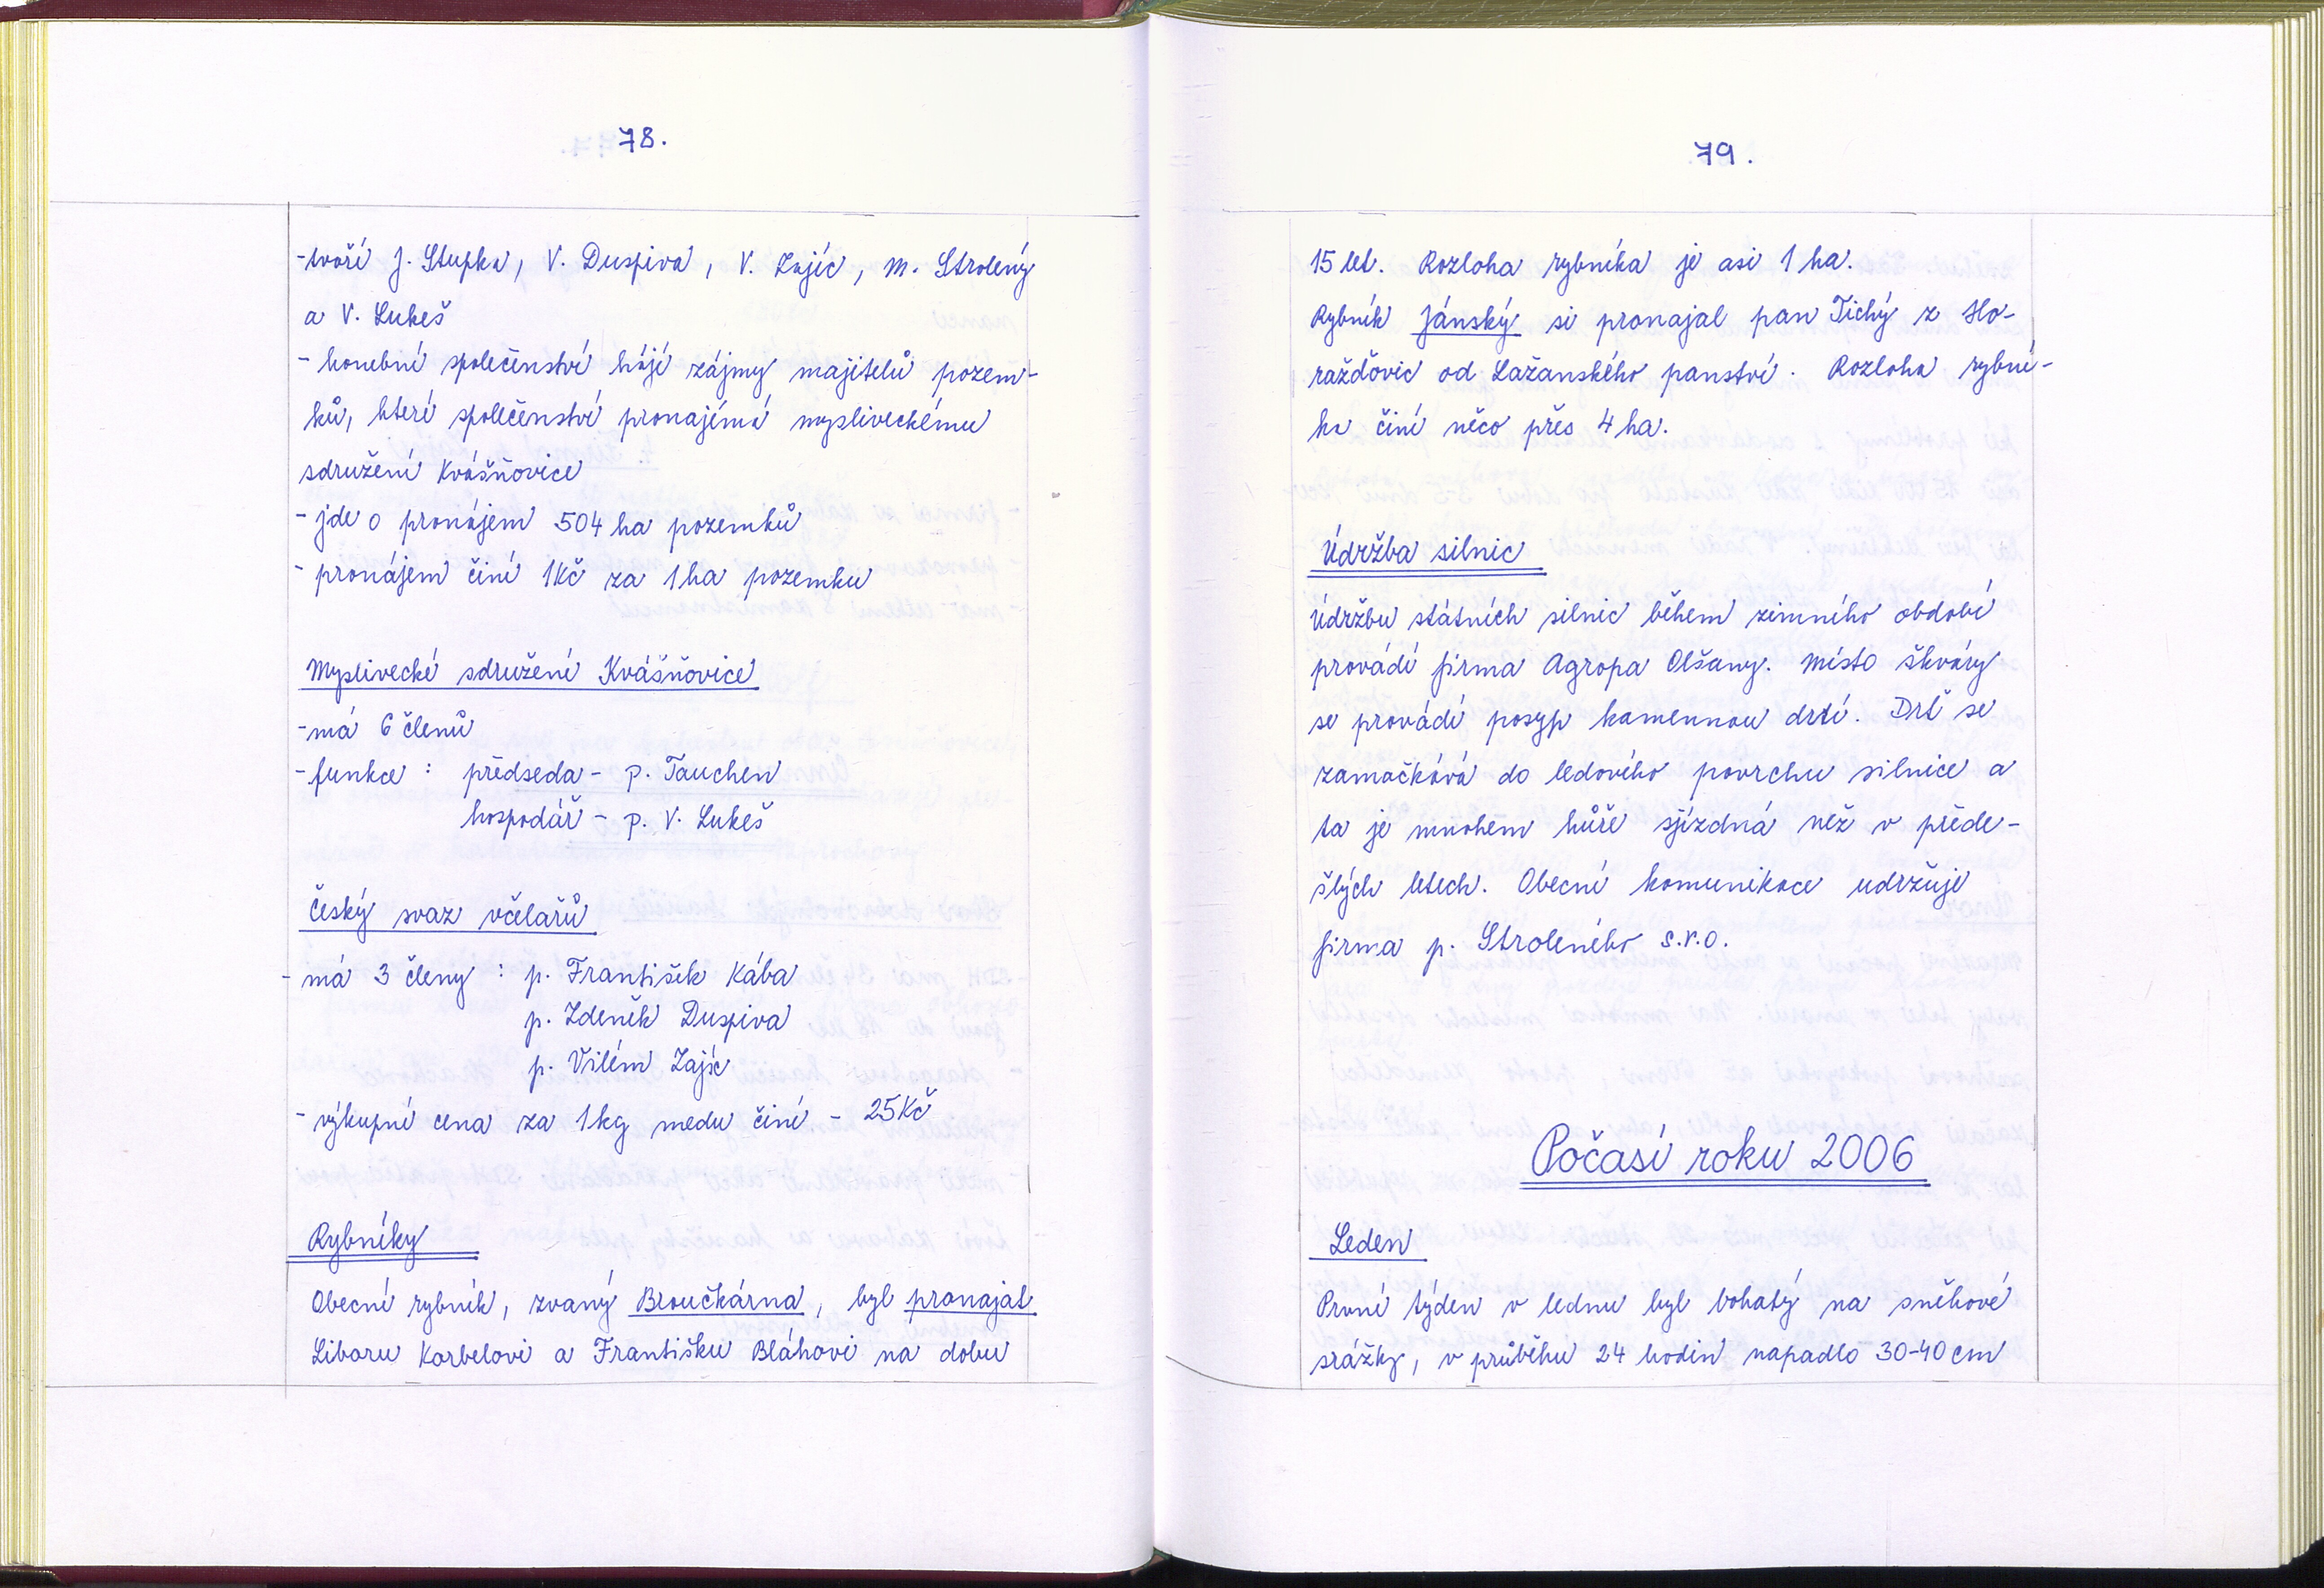 78.
-tvoří J. Stupka, V. Duspiva, V. Zajíc, M. Strolený
a V. Lukeš
- honební společenství hájí zájmy majitelů pozem-
ků, které společenství pronajímá mysliveckému
sdružení Kvášňovice
- jde o pronájem 504 ha pozemků
- pronájem činí 1Kč za 1ha pozemku
Myslivecké sdružení Kvášňovice
-má 6 členů
-funkce : předseda - p. Tauchen
hospodář - p. V. Lukeš
Český svaz včelařů
- má 3 členy : p. František Kába
p. Zdeněk Duspiva
p. Vilém Zajíc
- výkupní cena za 1kg medu činí - 25Kč
Rybníky
Obecní rybník, zvaný Broučkárna, byl pronajat
Liboru Korbelovi a Františku Bláhovi na dobu
79.
15 let. Rozloha rybníka je asi 1 ha.
Rybník Jánský si pronajal pan Tichý z Ho-
ražďovic od Lažanského panství. Rozloha rybní-
ka činí něco přes 4 ha.
Údržba silnic
Údržbu státních silnic během zimního období
provádí firma Agropa Olšany. Místo škváry
se provádí posyp kamennou drtí. Drť se
zamačkává do ledového povrchu silnice a
ta je mnohem hůře sjízdná než v přede-
šlých letech. Obecní komunikace udržuje
firma p. Stroleného s.r.o.
Počasí roku 2006
Leden
První týden v lednu byl bohatý na sněhové
srážky, v průběhu 24 hodin napadlo 30-40cm